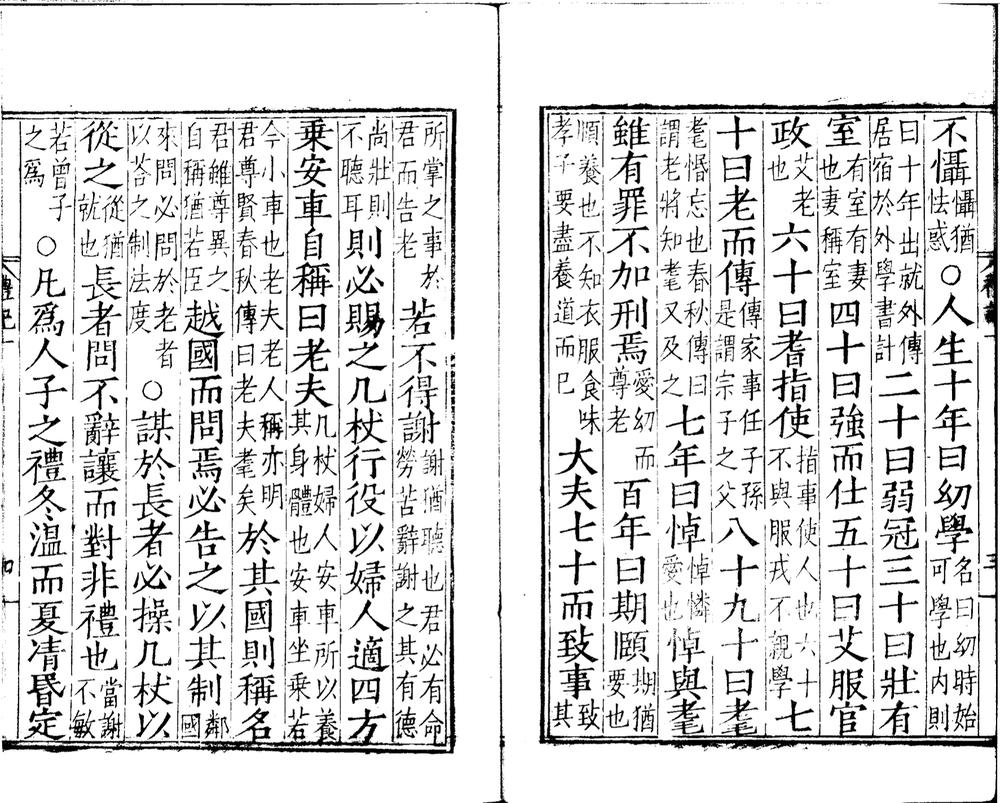 不懾懾猶怯惑○人生十年曰幼學名曰幼時始可學也内則
曰十年出就外傳居宿於外學書計二十曰弱冠三十曰壯有
室有室有妻也妻稱室四十曰強而仕五十曰艾服官
政艾老也六十曰耆指使指事使人也六十不與服戎不親學七
十曰老而傳傳家事任子孫是謂宗子之父八十九十曰耄
耄惽忘也春秋傳曰謂老將知耄又及之七年曰悼悼憐愛也悼與耄
雖有罪不加刑焉愛幼而尊老百年曰期頤期猶要也
頤養也不知衣服食味孝子要盡養道而已大夫七十而致事致其
所掌之事於君而告老若不得謝謝猶聽也君必有命勞苦辭謝之其有德
尚壯則不聽耳則必賜之几杖行役以婦人適四方
乗安車自稱曰老夫几杖婦人安車所以養其身體也安車坐乗若
今小車也老夫老人稱亦明君尊賢春秋傳曰老夫耄矣於其國則稱名
君雖尊異之自稱猶若臣越國而問焉必告之以其制鄰國
來問必問於老者以荅之制法度○謀於長者必操几杖以
從之從猶就也長者問不辭讓而對非禮也當謝不敏
若曾子之爲○凡爲人子之禮冬温而夏凊昬定